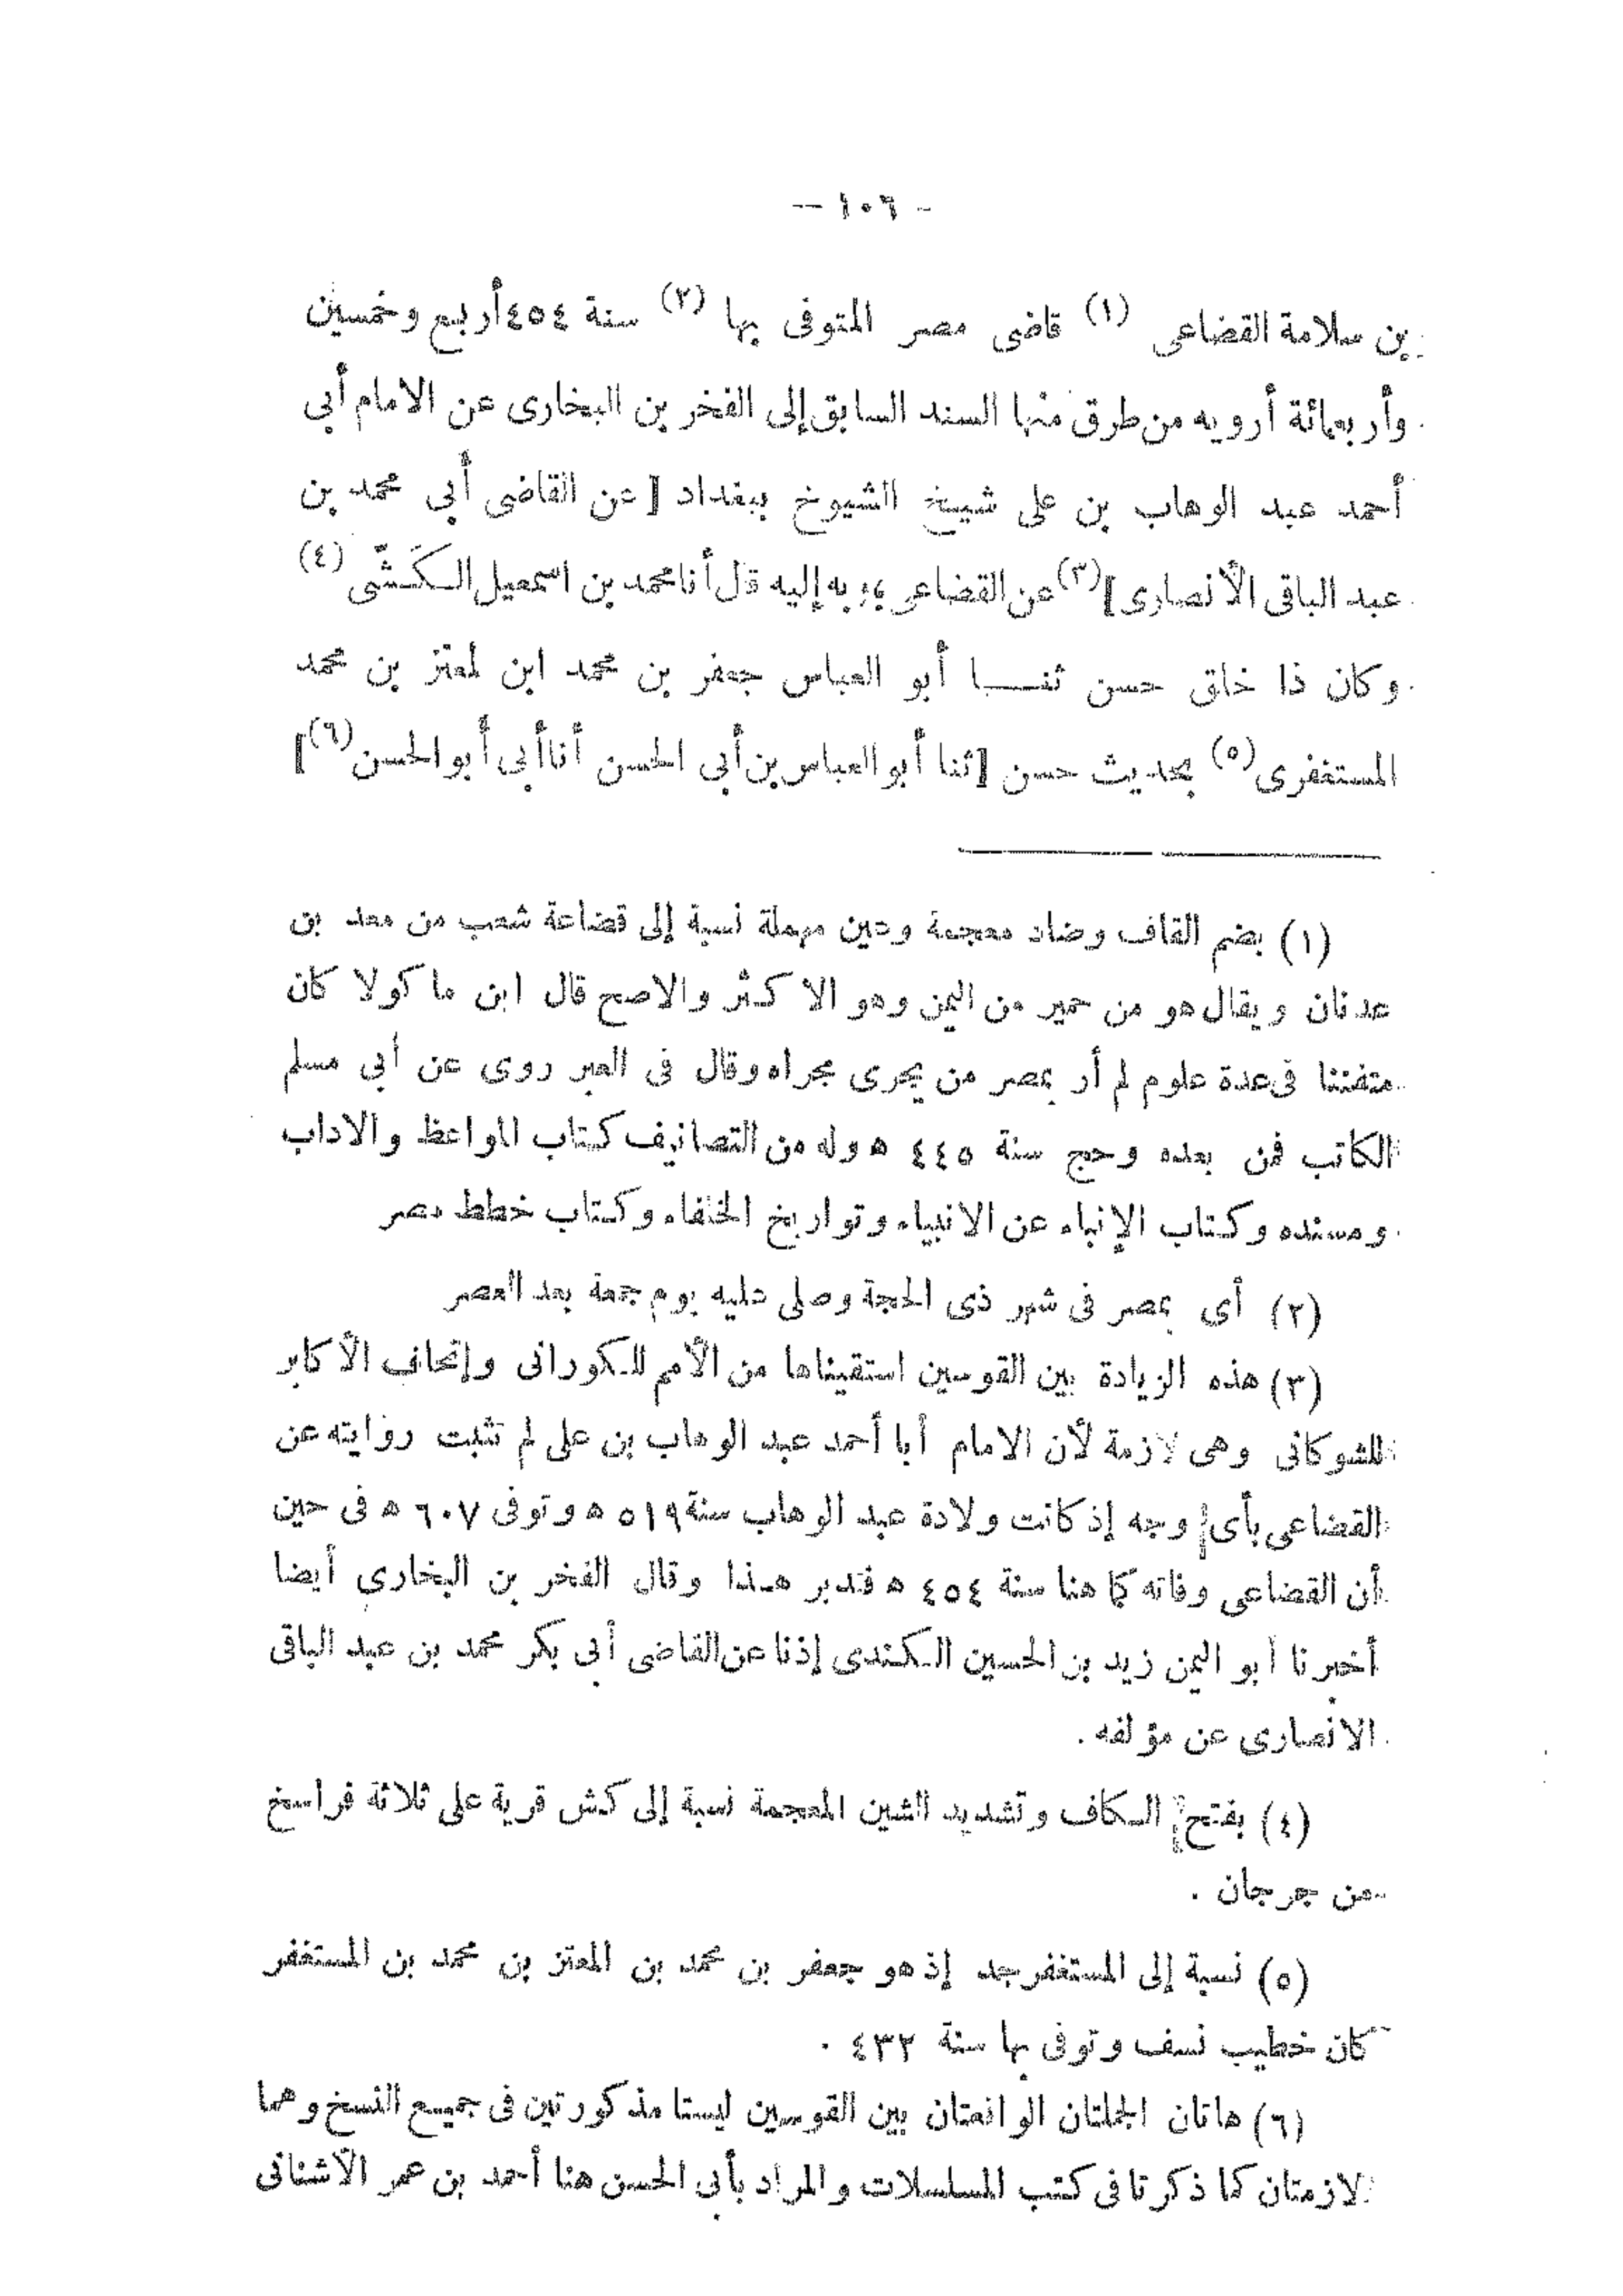 - ١٠٦ -
بن سلامة القضاعى (١) قاضى مصر المتوفى بها (٢) سنة ٤٥٤ أربع وخمسين
وأربعمائة أرويه من طرق منها السند السابق إلى الفخر بن البخارى عن الامام أبي
أحمد عبد الوهاب بن على شيخ الشيوخ ببغداد [ عن القاضى أبي محمد بن
عبد الباقى الأنصارى ] (٣) عن القضاعى به إليه قال أنا محمد بن اسمعيل الكَشّى (٤)
وكان ذا خلق حسن ثنا أبو العباس جعفر بن محمد ابن لمعتز بن محمد
المستغفرى (٥) بحديث حسن [ ثنا أبو العباس بن أبي الحسن أنا أبي أبو الحسن (٦) ]
(١) بضم القاف وضاد معجمة وعين مهملة نسبة إلى قضاعة شعب من معد بن
عدنان ويقال هو من حمير من اليمن وهو الاكثر والاصح قال ابن ماكولا كان
متفننا فى عدة علوم لم أر بمصر من يجرى مجراه وقال فى العبر روى عن أبي مسلم
الكاتب فمن بعده وحج سنة ٤٤٥ ه وله من التصانيف كتاب المواعظ والاداب
ومسنده وكتاب الإنباء عن الانبياء وتواريخ الخلفاء وكتاب خطط مصر
(٢) أى بمصر فى شهر ذى الحجة وصلى عليه يوم جمعة بعد العصر
(٣) هذه الزيادة بين القوسين استقيناها من الأمم للكورانى وإتحاف الأكابر
للشوكانى وهى لازمة لأن الامام أبا أحمد عبد الوهاب بن على لم تثبت روايته عن
القضاعى بأى وجه إذ كانت ولادة عبد الوهاب سنة ٥١٩ ه وتوفى ٦٠٧ ه فى حين
أن القضاعى وفاته كما هنا سنة ٤٥٤ ه فتدبر هذا وقال الفخر بن البخارى أيضا
أخبرنا أبو اليمن زيد بن الحسين الكندى إذنا عن القاضى أبي بكر محمد بن عبد الباقى
الانصارى عن مؤلفه .
(٤) بفتح الكاف وتشديد الشين المعجمة نسبة إلى كش قرية على ثلاثة فراسخ
من جرجان .
(٥) نسبة إلى المستغفر جد إذ هو جعفر بن محمد بن المعتز بن محمد بن المستغفر
كان خطيب نسف وتوفى بها سنة ٤٣٢ .
(٦) هاتان الجملتان الواقعتان بين القوسين ليستا مذكورتين فى جميع النسخ وهما
لازمتان كما ذكرتا فى كتب المسلسلات والمراد بأبي الحسن هنا أحمد بن عمر الأشنانى